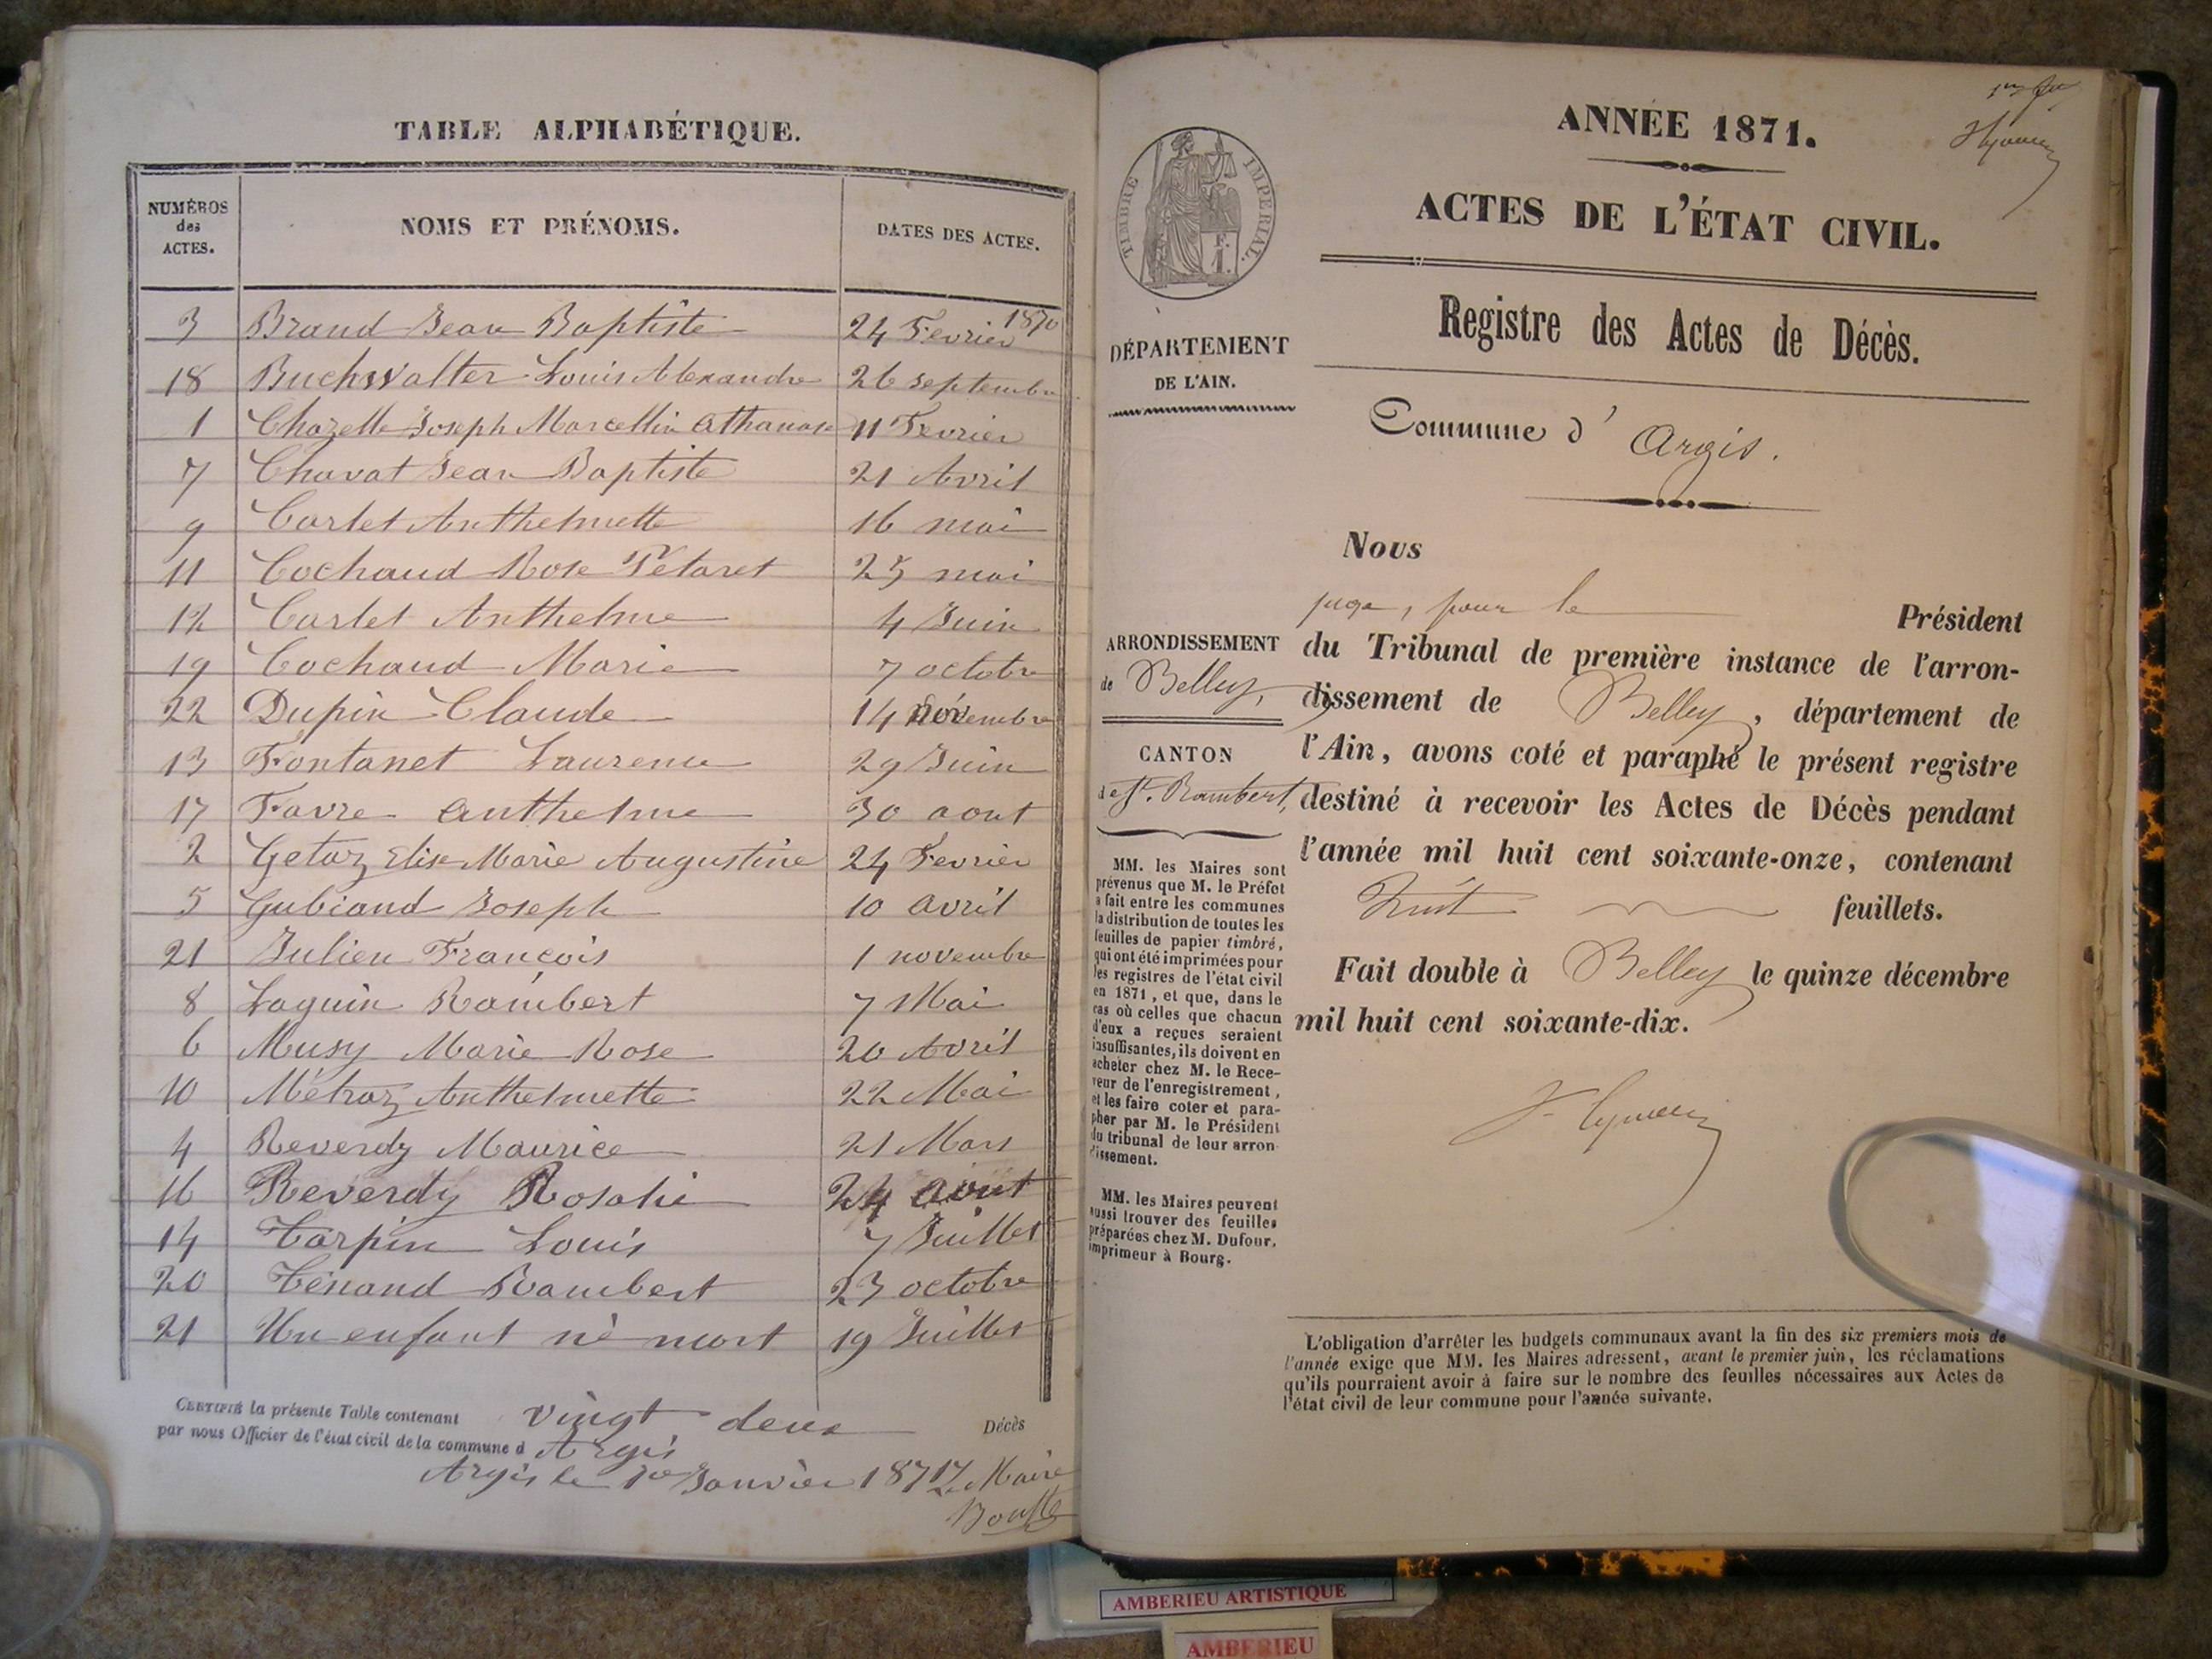 TABLE ALPHABÉTIQUE.
NUMÉROS des ACTES. NOMS ET PRÉNOMS. DATES DES ACTES.
3 Brand Jean Baptiste 24 Fevrier 1870
18 Buchwalter Louis Alexandre 26 septembre
1 Chazelle Joseph Marcellin Athanase 11 Fevrier
7 Chavat Jean Baptiste 21 Avril
9 Carlet Anthelmette 16 mai
11 Cochaud Rose Pétaret 25 mai
12 Carlet Anthelme 4 Juin
19 Cochaud Marie 7 octobre
22 Dupin Claude 14 novembre
13 Fontanet Laurence 29 Juin
17 Favre Anthelme 30 aout
2 Getaz Elise Marie Augustine 24 Fevrier
5 Gubiand Joseph 10 avril
21 Julien François 1 novembre
8 Laguin Rambert 7 Mai
6 Musy Marie Rose 20 Avril
10 Métraz Anthelmette 22 Mai
4 Reverdy Maurice 21 Mars
16 Reverdy Rosalie 24 août
14 Tarpin Louis 7 Juillet
20 Ténand Rambert 23 octobre
21 Un enfant né mort 19 Juillet
CERTIFIÉ la présente Table contenant vingt deux Décès
par nous Officier de l'état civil de la commune d Argis
Argis le 1er Janvier 1871 Le Maire
TIMBRE IMPERIAL.
F.
1.
DÉPARTEMENT
DE L'AIN.
ARRONDISSEMENT
de Belley,
CANTON
de St. Rambert,
MM. les Maires sont
prévenus que M. le Préfet
a fait entre les communes
la distribution de toutes les
feuilles de papier timbré,
qui ont été imprimées pour
les registres de l'état civil
en 1871, et que, dans le
cas où celles que chacun
d'eux a reçues seraient
insuffisantes, ils doivent en
acheter chez M. le Rece-
veur de l'enregistrement,
et les faire coter et para-
pher par M. le Président
du tribunal de leur arron-
dissement.
MM. les Maires peuvent
aussi trouver des feuilles
préparées chez M. Dufour,
imprimeur à Bourg.
ANNÉE 1871.
ACTES DE L'ÉTAT CIVIL.
Registre des Actes de Décès.
Commune d' Argis.
Nous
juge, pour le Président
du Tribunal de première instance de l'arron-
dissement de Belley, département de
l'Ain, avons coté et paraphé le présent registre
destiné à recevoir les Actes de Décès pendant
l'année mil huit cent soixante-onze, contenant
huit feuillets.
Fait double à Belley le quinze décembre
mil huit cent soixante-dix.
L'obligation d'arrêter les budgets communaux avant la fin des six premiers mois de
l'année exige que MM. les Maires adressent, avant le premier juin, les réclamations
qu'ils pourraient avoir à faire sur le nombre des feuilles nécessaires aux Actes de
l'état civil de leur commune pour l'année suivante.
AMBERIEU ARTISTIQUE
AMBERIEU